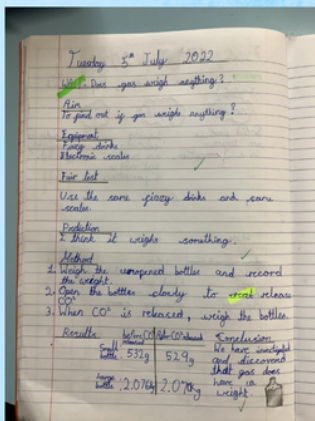 Tuesday 5th July 2022
Does gas weigh anything?
Aim
To find out if gas weighs anything?
Equipment
Fizzy drinks
Electronic scales
Fair test
Use the same fizzy drinks and same
scales.
Prediction
I think it weighs something.
Method
1. Weigh the unopened bottles and record
the weight.
2. Open the bottles slowly to release
CO²
3. When CO² is released, weigh the bottles.
Results before CO² released After CO² released
Small bottle 532g 529g
Large bottle
Conclusion
We have investigated
and discovered
that gas does
have a
weight.